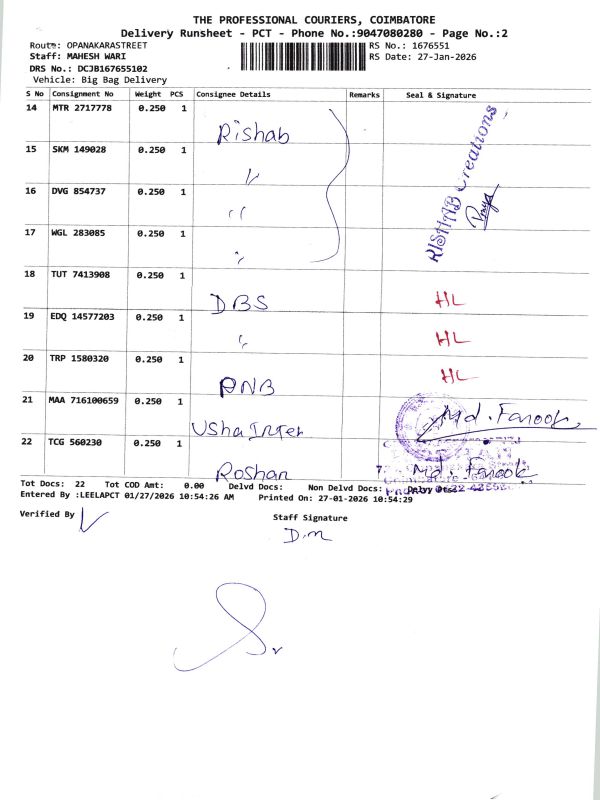 THE PROFESSIONAL COURIERS, COIMBATORE
Delivery Runsheet - PCT - Phone No.:9047080280 - Page No.:2
Route: OPANAKARASTREET
RS No.: 1676551
Staff: MAHESH WARI
RS Date: 27-Jan-2026
DRS No.: DCJB167655102
Vehicle: Big Bag Delivery
S No Consignment No Weight PCS Consignee Details Remarks Seal & Signature
14 MTR 2717778 0.250 1 Rishab
RISHAB Creations
15 SKM 149028 0.250 1 "
16 DVG 854737 0.250 1 "
17 WGL 283085 0.250 1 "
18 TUT 7413908 0.250 1 DBS HL
19 EDQ 14577203 0.250 1 " HL
20 TRP 1580320 0.250 1 PNB HL
21 MAA 716100659 0.250 1 Usha Inter Md. Farook
22 TCG 560230 0.250 1 Roshan Md. Farook
Tot Docs: 22 Tot COD Amt: 0.00 Delvd Docs: Non Delvd Docs:
Entered By :LEELAPCT 01/27/2026 10:54:26 AM Printed On: 27-01-2026 10:54:29
Verified By
Staff Signature
D.m